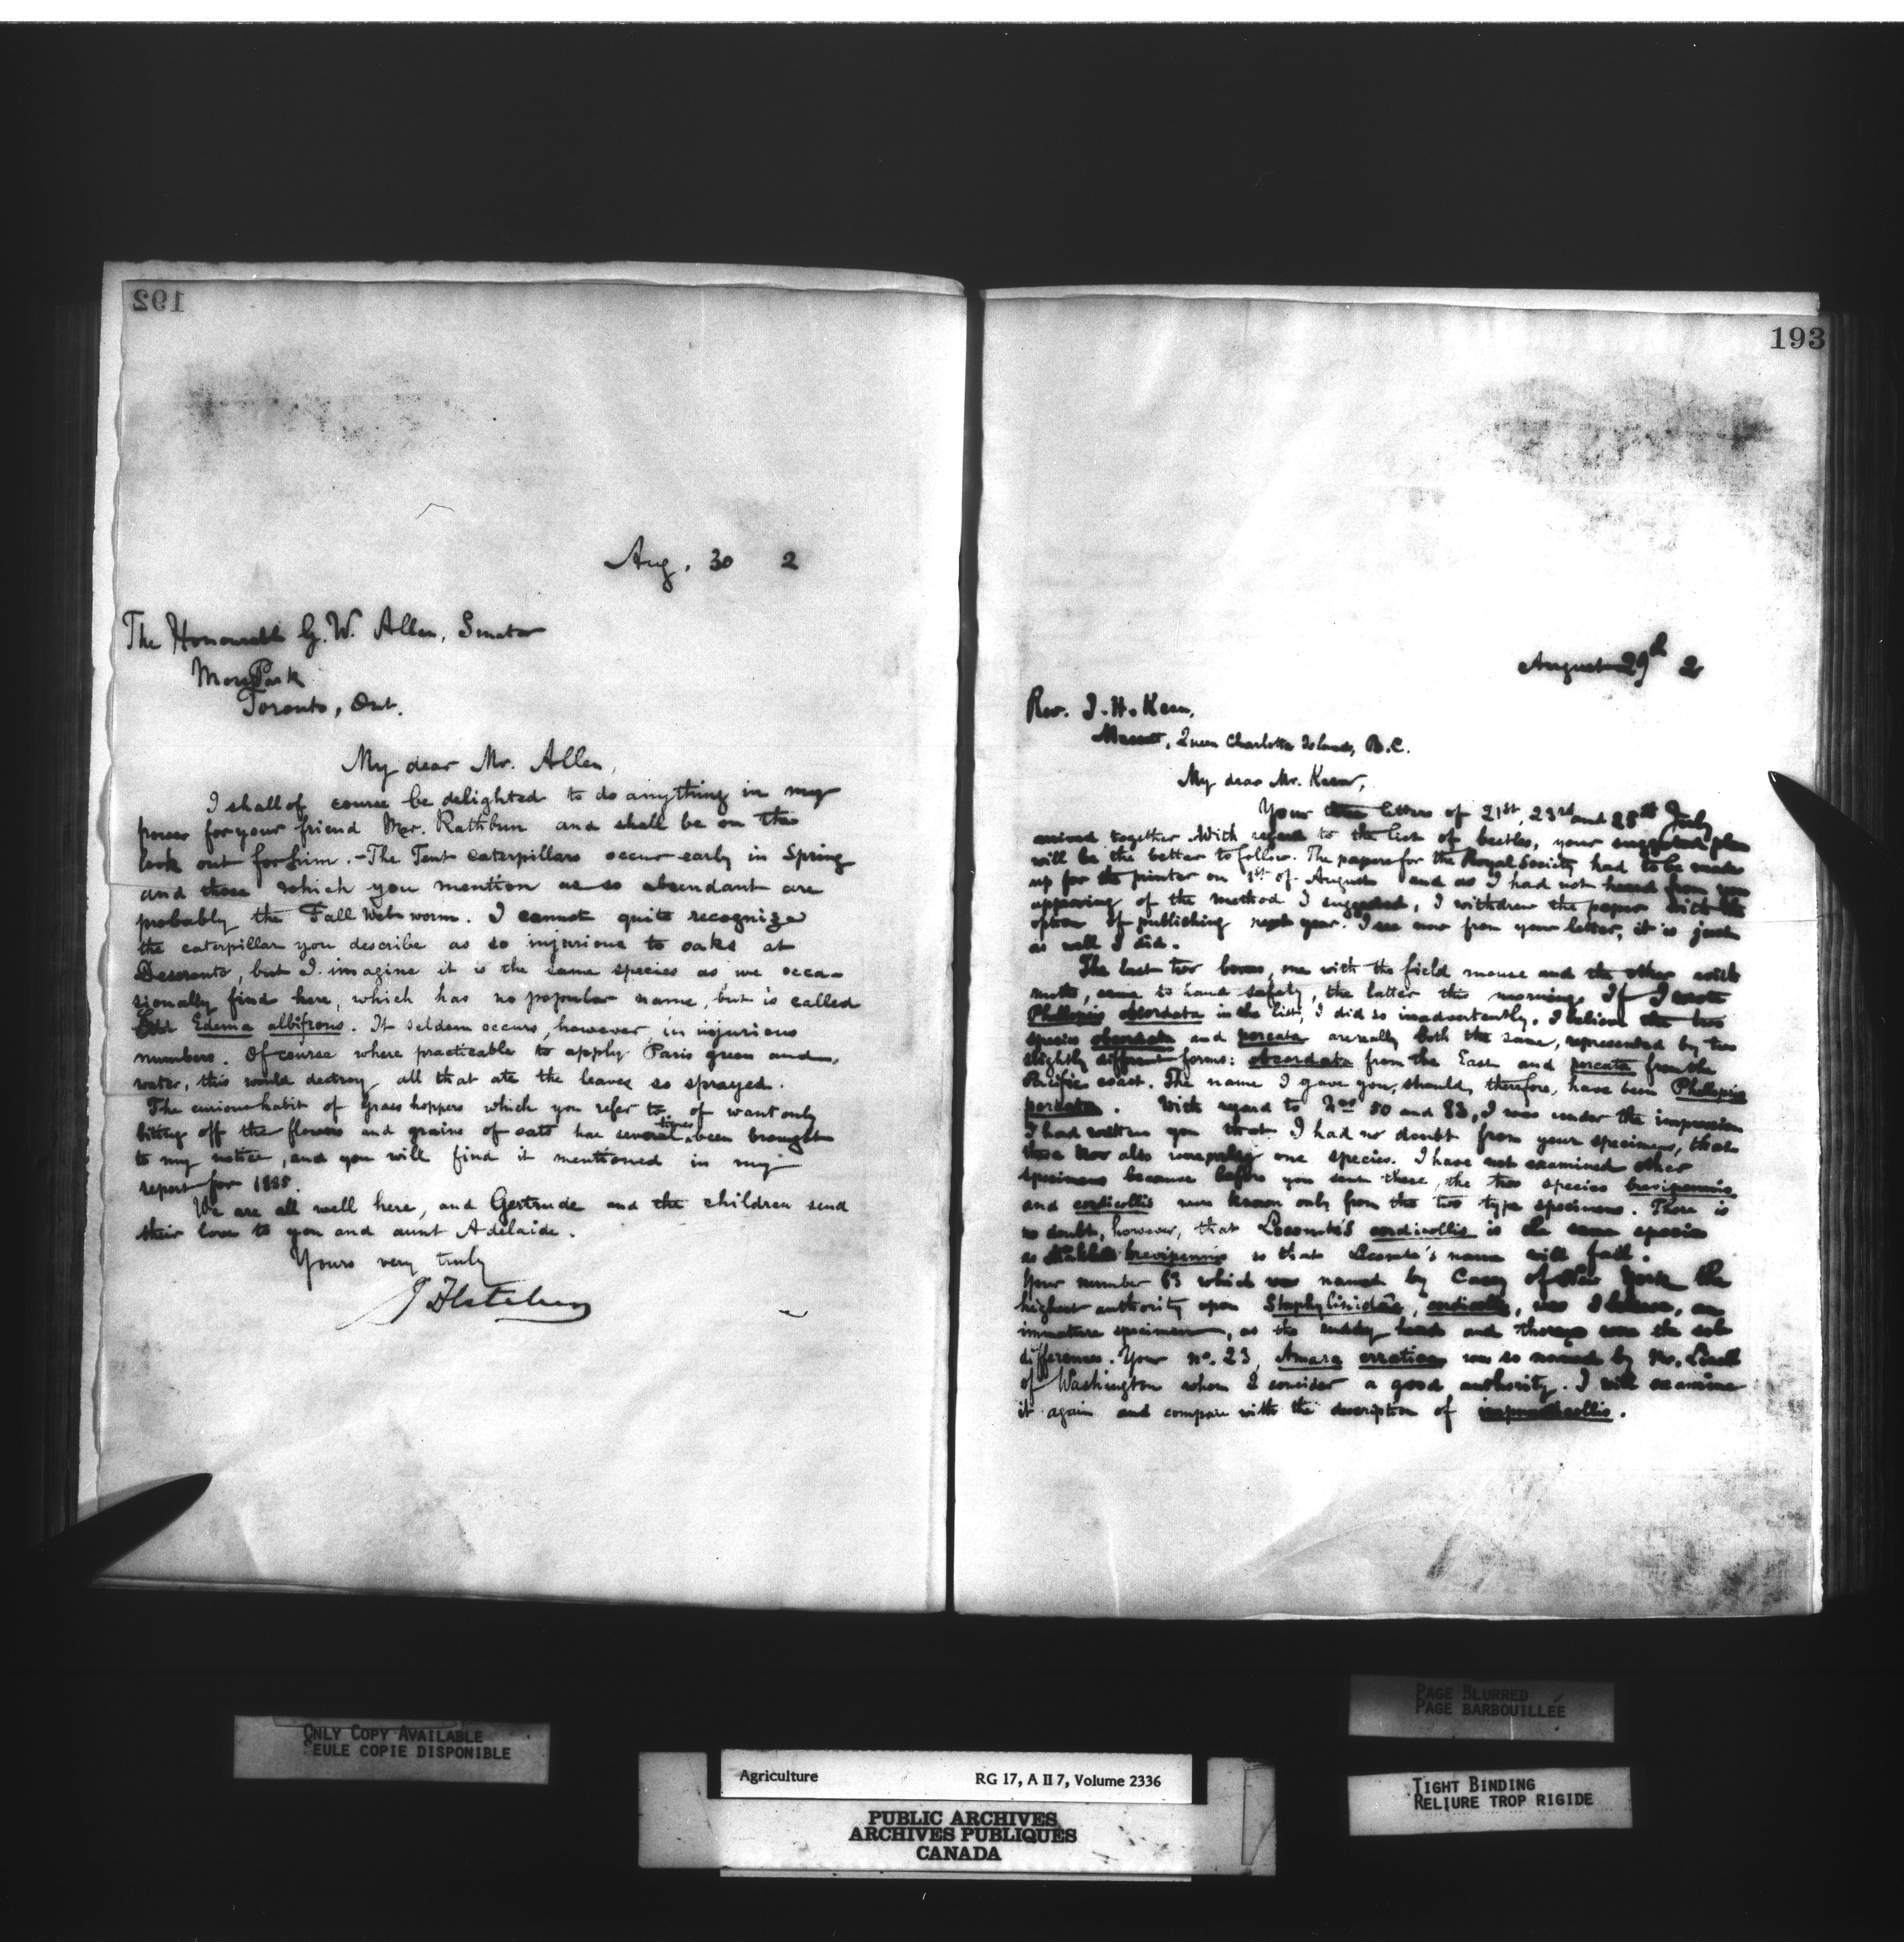 192
Aug. 30 2
The Honourable G. W. Allen, Senator
Moss Park
Toronto, Ont.
My dear Mr. Allen,
I shall of course be delighted to do anything in my
power for your friend Mr. Rathbun and shall be on the
look out for him. - The Tent caterpillars occur early in Spring
and those which you mention as so abundant are
probably the Fall Web worm. I cannot quite recognize
the caterpillar you describe as so injurious to oaks at
Deseronto, but I imagine it is the same species as we occa-
sionally find here, which has no popular name, but is called
Edema albifrons. It seldom occurs, however, in injurious
numbers. Of course where practicable to apply Paris green and
water, this would destroy all that ate the leaves so sprayed.
The curious habit of grass hoppers which you refer to, of wantonly
biting off the flowers and grains of oats has several times been brought
to my notice, and you will find it mentioned in my
report for 1885.
We are all well here, and Gertrude and the children send
their love to you and aunt Adelaide.
Yours very truly
J Fletcher
193
August 29th 2
Rev. J. H. Keen,
Massett, Queen Charlotte Islands, B.C.
My dear Mr. Keen,
Your letters of 21st, 23rd and 25th July
arrived together. With regard to the list of beetles, your suggested plan
will be the better to follow. The papers for the Royal Society had to be made
up for the printer on 1st of August and as I had not heard from you
approving of the method I suggested, I withdrew the paper with the
option of publishing next year. I see now from your letter, it is just
as well I did.
The last two boxes, one with the field mouse and the other with
moths, came to hand safely, the latter this morning. If I wrote
Phellopsis obcordata in the list, I did so inadvertently. I believe the two
species obcordata and porcata are really both the same, represented by two
slightly different forms: obcordata from the East and porcata from the
Pacific coast. The name I gave you, should, therefore, have been Phellopsis
porcata. With regard to Nos 50 and 83, I was under the impression
I had written you that I had no doubt from your specimens, that
these two also were one species. I have not examined other
specimens because before you sent these, the two species brevipennis
and cordicollis were known only from the two type specimens. There is
no doubt, however, that Leconte's cordicollis is the same species
as brevipennis so that Leconte's name will fall.
Your number 63 which was named by Casey of New York the
highest authority upon Staphylinidae, was I believe, an
immature specimen, as the ruddy head and thorax were the sole
differences. Your no. 23, Amara erratica was so named by Mr. Linell
of Washington whom I consider a good authority. I will examine
it again and compare with the description of
ONLY COPY AVAILABLE
SEULE COPIE DISPONIBLE
PAGE BLURRED
PAGE BARBOUILLÉE
Agriculture RG 17, A II 7, Volume 2336
PUBLIC ARCHIVES
ARCHIVES PUBLIQUES
CANADA
TIGHT BINDING
RELIURE TROP RIGIDE